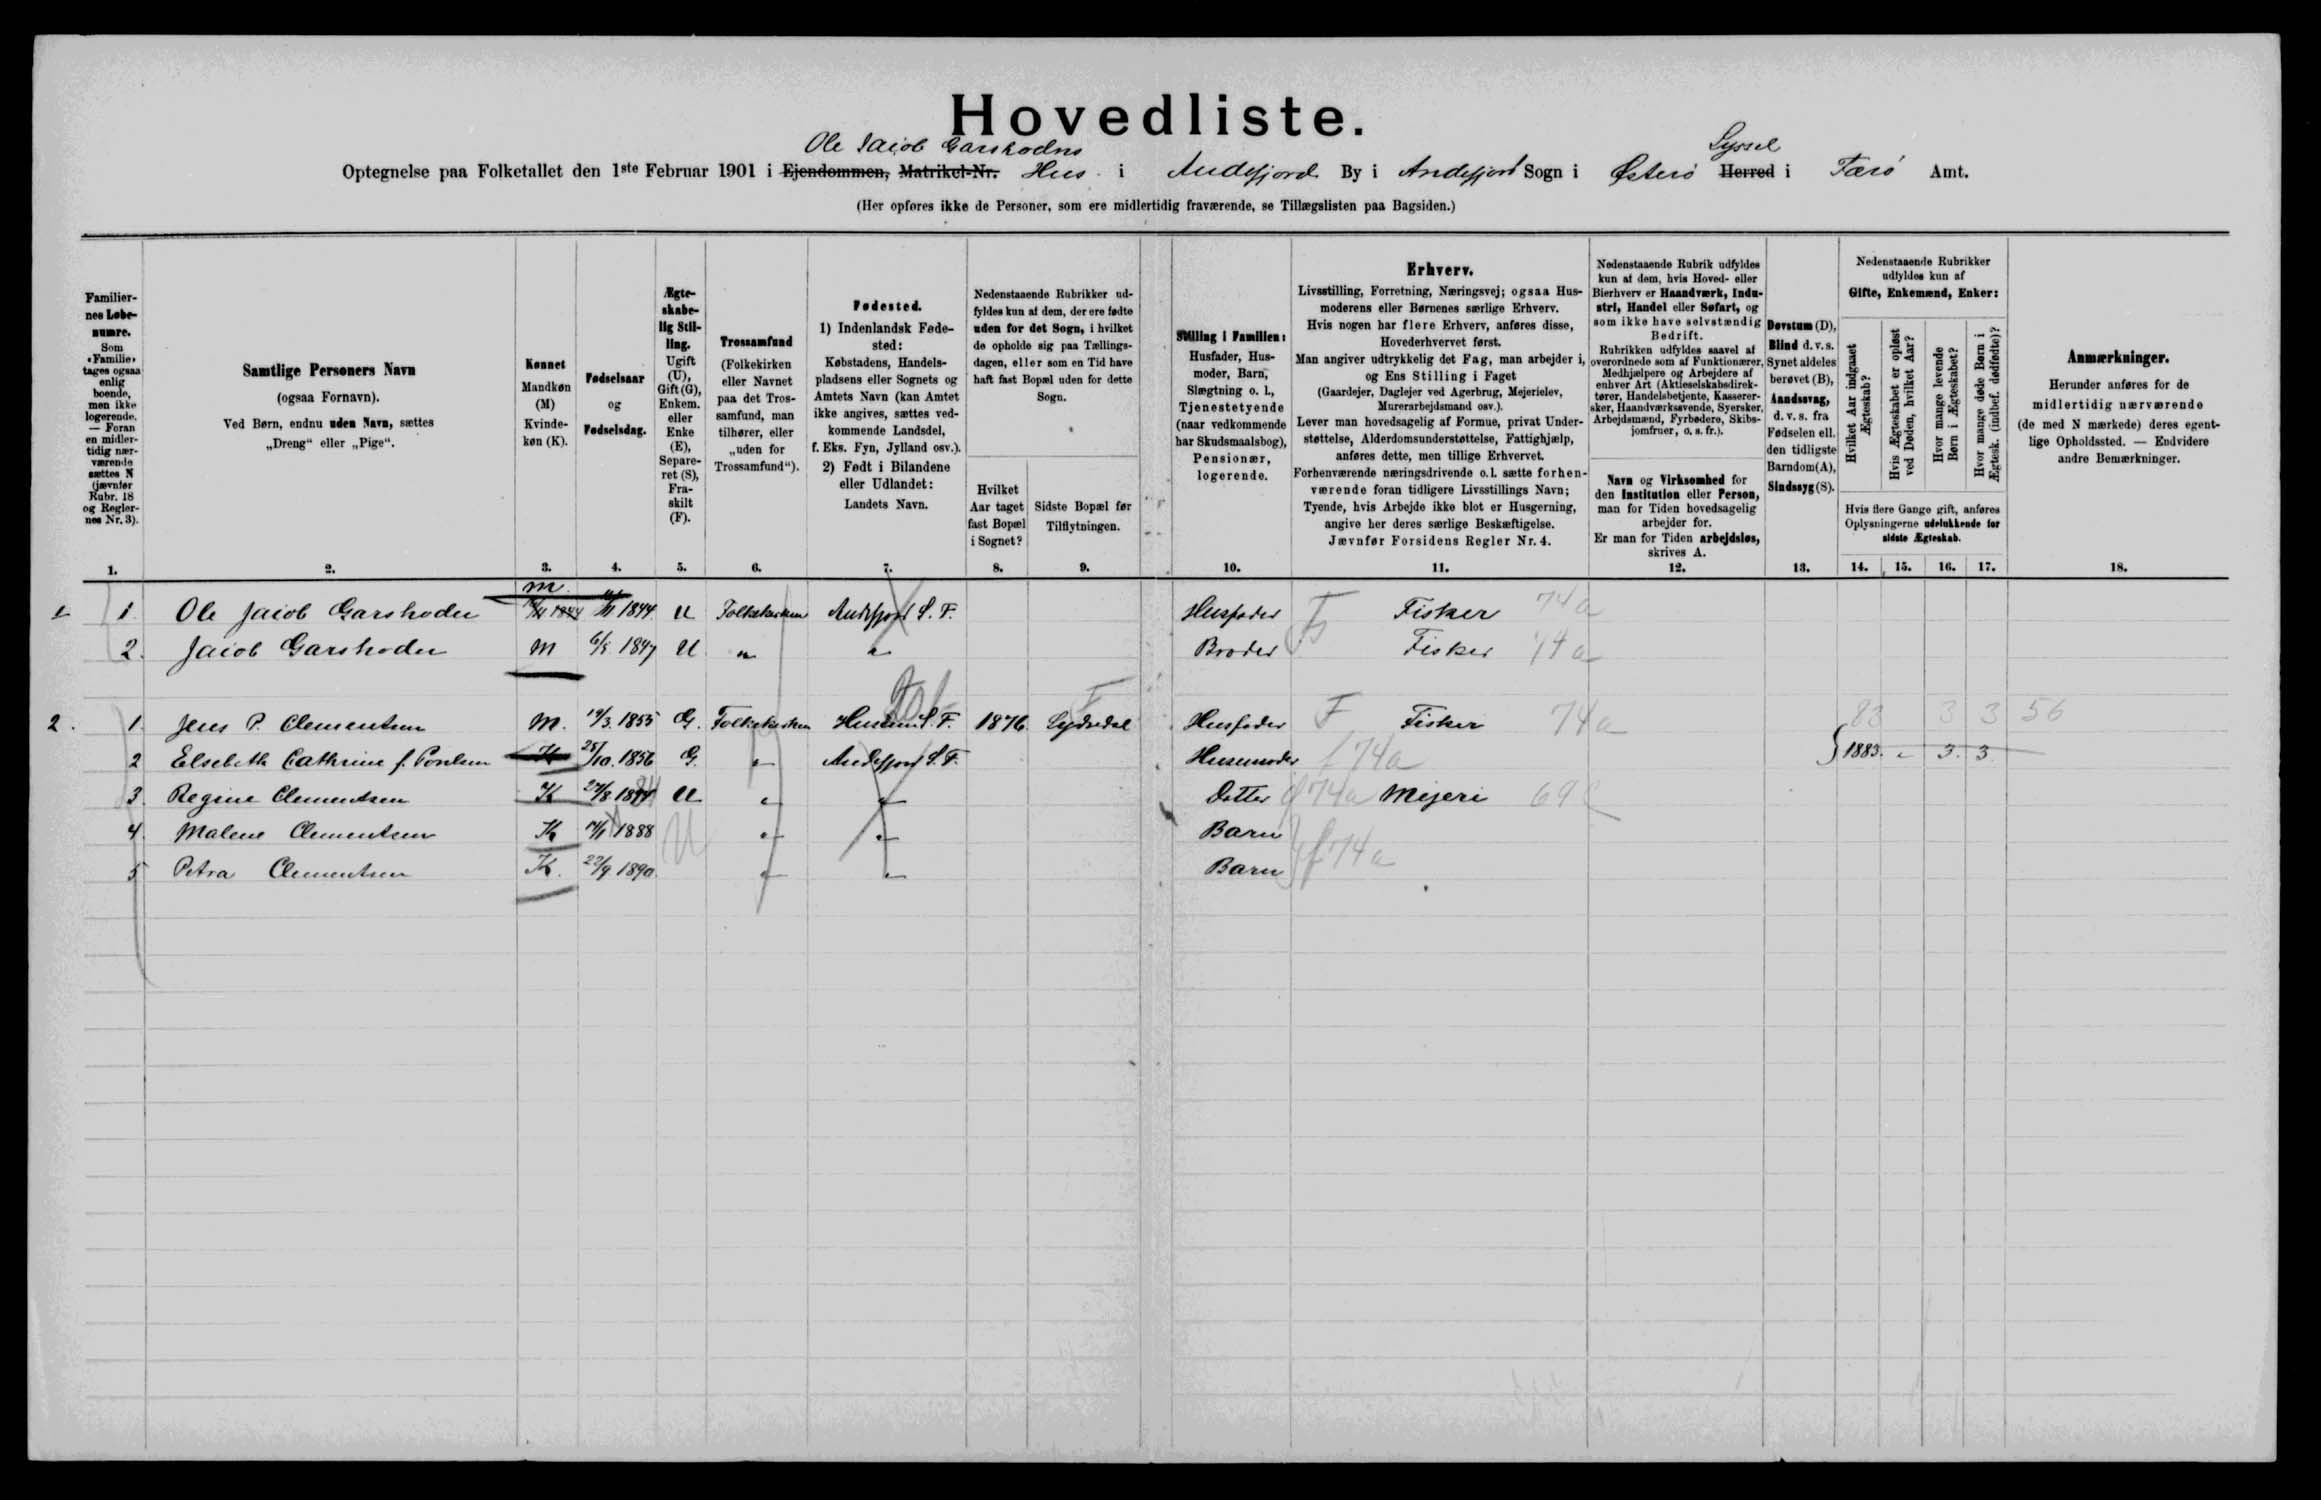 Hovedliste.
Ole Jacob Garshodns
Syssel
Optegnelse paa Folketallet den 1ste Februar 1901 i Ejendommen, Matrikel-Nr. Hus i Andefjord By i Andefjord Sogn i Østerö Herred i Færö Amt.
(Her opføres ikke de Personer, som ere midlertidig fraværende, se Tillægslisten paa Bagsiden.)
Familier-
nes Løbe-
numre.
Som
»Familie»
tages ogsaa
enlig
boende,
men ikke
logerende.
— Foran
en midler-
tidig nær-
værende
sættes N
(jævnfør
Rubr. 18
og Regler-
nes Nr. 3).
1.
Samtlige Personers Navn
(ogsaa Fornavn).
Ved Børn, endnu uden Navn, sættes
„Dreng“ eller „Pige“.
2.
Kønnet
Mandkøn
(M)
Kvinde-
køn (K).
3.
Fødselsaar
og
Fødselsdag.
4.
Ægte-
skabe-
lig Stil-
ling.
Ugift
(U),
Gift (G),
Enkem.
eller
Enke
(E),
Separe-
ret (S),
Fra-
skilt
(F).
5.
Trossamfund
(Folkekirken
eller Navnet
paa det Tros-
samfund, man
tilhører, eller
„uden for
Trossamfund“).
6.
Fødested.
1) Indenlandsk Føde-
sted:
Købstadens, Handels-
pladsens eller Sognets og
Amtets Navn (kan Amtet
ikke angives, sættes ved-
kommende Landsdel,
f. Eks. Fyn, Jylland osv.).
2) Født i Bilandene
eller Udlandet:
Landets Navn.
7.
Nedenstaaende Rubrikker ud-
fyldes kun af dem, der ere fødte
uden for det Sogn, i hvilket
de opholde sig paa Tællings-
dagen, eller som en Tid have
haft fast Bopæl uden for dette
Sogn.
Hvilket
Aar taget
fast Bopæl
i Sognet?
8.
Sidste Bopæl før
Tilflytningen.
9.
Stilling i Familien:
Husfader, Hus-
moder, Barn,
Slægtning o. l.,
Tjenestetyende
(naar vedkommende
har Skudsmaalsbog),
Pensionær,
logerende.
10.
Erhverv.
Livsstilling, Forretning, Næringsvej; ogsaa Hus-
moderens eller Børnenes særlige Erhverv.
Hvis nogen har flere Erhverv, anføres disse,
Hovederhvervet først.
Man angiver udtrykkelig det Fag, man arbejder i,
og Ens Stilling i Faget
(Gaardejer, Daglejer ved Agerbrug, Mejerielev,
Murerarbejdsmand osv.).
Lever man hovedsagelig af Formue, privat Under-
støttelse, Alderdomsunderstøttelse, Fattighjælp,
anføres dette, men tillige Erhvervet.
Forhenværende næringsdrivende o. l. sætte forhen-
værende foran tidligere Livsstillings Navn;
Tyende, hvis Arbejde ikke blot er Husgerning,
angive her deres særlige Beskæftigelse.
Jævnfør Forsidens Regler Nr. 4.
11.
Nedenstaaende Rubrik udfyldes
kun af dem, hvis Hoved- eller
Bierhverv er Haandværk, Indu-
stri, Handel eller Søfart, og
som ikke have selvstændig
Bedrift.
Rubrikken udfyldes saavel af
overordnede som af Funktionærer,
Medhjælpere og Arbejdere af
enhver Art (Aktieselskabsdirek-
tører, Handelsbetjente, Kasserer-
sker, Haandværkssvende, Syersker,
Arbejdsmænd, Fyrbødere, Skibs-
jomfruer, o. s. fr.).
Navn og Virksomhed for
den Institution eller Person,
man for Tiden hovedsagelig
arbejder for.
Er man for Tiden arbejdsløs,
skrives A.
12.
Døvstum (D),
Blind d. v. s.
Synet aldeles
berøvet (B),
Aandssvag,
d. v. s. fra
Fødselen ell.
den tidligste
Barndom (A),
Sindssyg (S).
13.
Nedenstaaende Rubrikker
udfyldes kun af
Gifte, Enkemænd, Enker:
Hvilket Aar indgaaet
Ægteskab?
Hvis Ægteskabet er opløst
ved Døden, hvilket Aar?
Hvor mange levende
Børn i Ægteskabet?
Hvor mange døde Børn i
Ægtesk. (indbef. dødfødte)?
Hvis flere Gange gift, anføres
Oplysningerne udelukkende for
sidste Ægteskab.
14. 15. 16. 17.
Anmærkninger.
Herunder anføres for de
midlertidig nærværende
(de med N mærkede) deres egent-
lige Opholdssted. — Endvidere
andre Bemærkninger.
18.
1 1. Ole Jacob Garshoden M 1844 U Folkekirken Andefjord S. F. Husfader F Fisker 74a
2. Jacob Garshoden M 6/8 1847 U " " Broder Fisker 74a
2. 1. Jens P. Clementsen M. 19/3 1855 G. Folkekirken S. F. 1876 Husfader F Fisker 74a 83 3 3 56
2 Elsebeth Cathrine f. Poulsen K 25/10 1856 G. " Andefjord S. F. Husmoder f 74a 1883. " 3. 3
3. Regine Clementsen K 27/8 1884 U " " Datter f 74a Mejeri 69
4. Malene Clementsen K 1888 U " " Barn
5 Petra Clementsen K. 22/9 1890 " " Barn f 74a